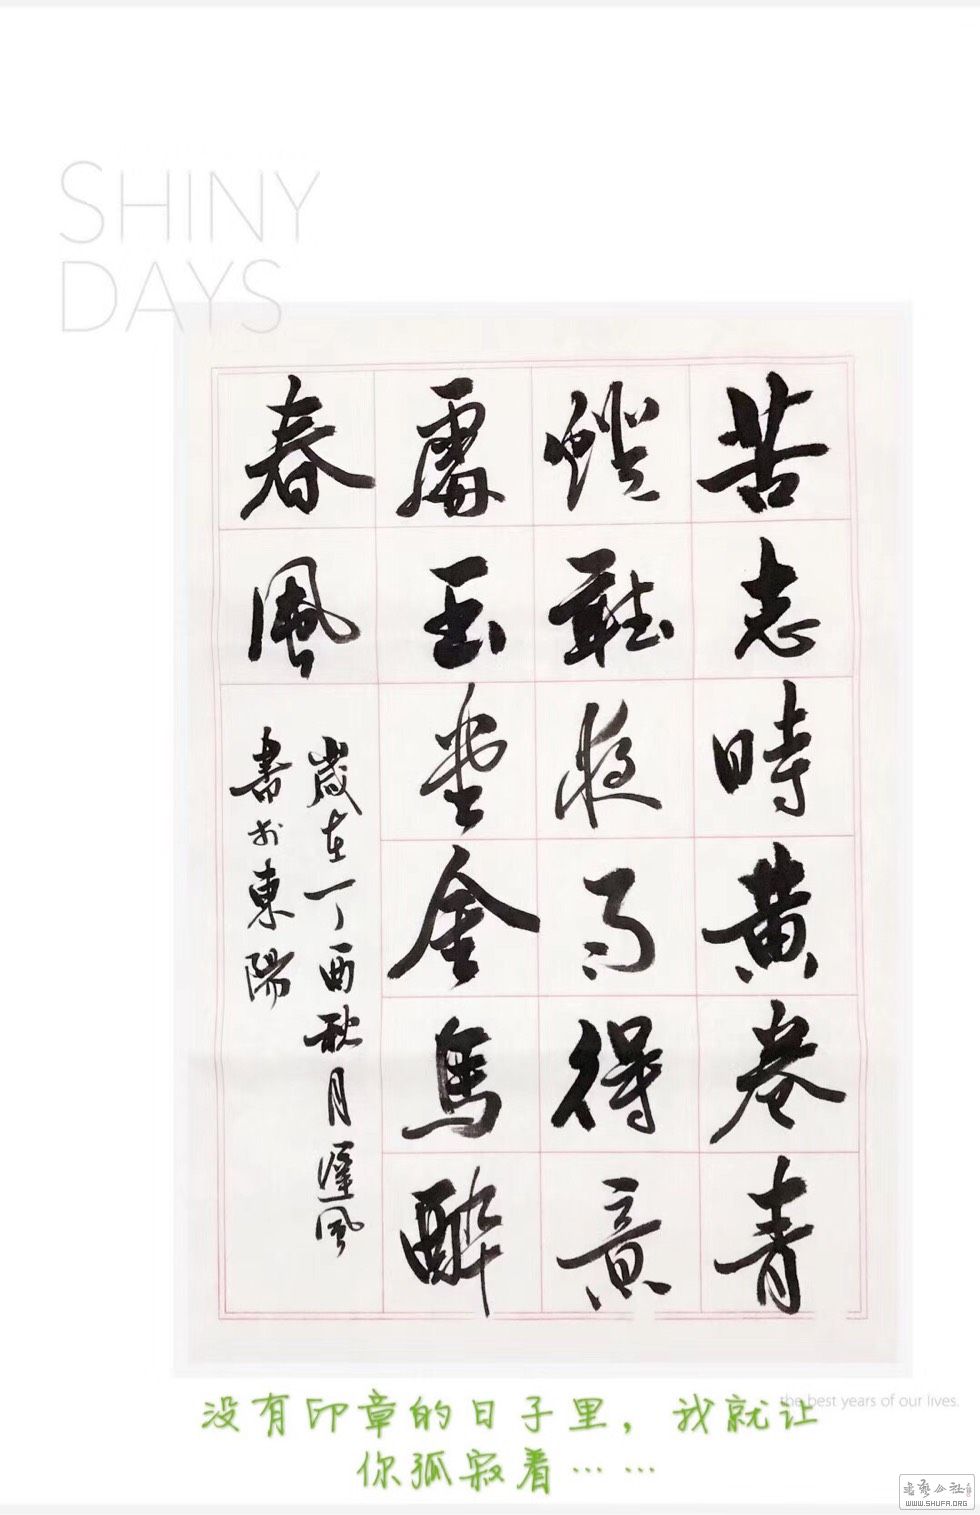 SHINY
DAYS
苦志時黃卷青
燈聽夜雨得意
處玉堂金馬醉
春風
歲在丁酉秋月風
書於東陽
the best years of our lives.
没有印章的日子里，我就让
你孤寂着……
书艺公社
WWW.SHUFA.ORG